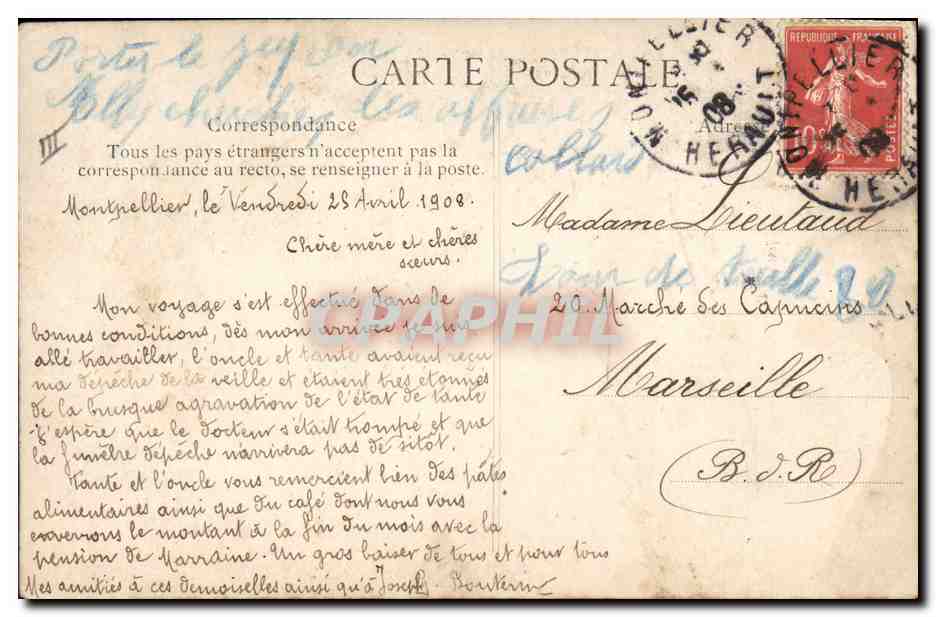 Porter le
des affaires
CARTE POSTALE
III
Correspondance
Tous les pays étrangers n'acceptent pas la
correspondance au recto, se renseigner à la poste.
Montpellier, le Vendredi 25 Avril 1908.
Chère mère et chères
sœurs.
Mon voyage s'est effectué dans de
bonnes conditions, dès mon arrivée je suis
allé travailler, l'oncle et tante avaient reçu
ma dépêche de la veille et étaient très étonnés
de la brusque agravation de l'état de tante
J'espère que le docteur s'était trompé et que
la funèbre dépêche n'arrivera pas de sitôt.
Tante et l'oncle vous remercient bien des pâtes
alimentaires ainsi que du café dont nous vous
enverrons le montant à la fin du mois avec la
pension de Marraine. Un gros baiser de tous et pour tous
Mes amitiés à ces demoiselles ainsi qu'à Joseph.
MONTPELLIER
08
HERAULT
REPUBLIQUE FRANÇAISE
10
POSTES
MONTPELLIER
HERAULT
Adresse
Madame Lieutaud
de
20
20. Marché des Capucins
Marseille
(B. d. R)
CPAPHIL